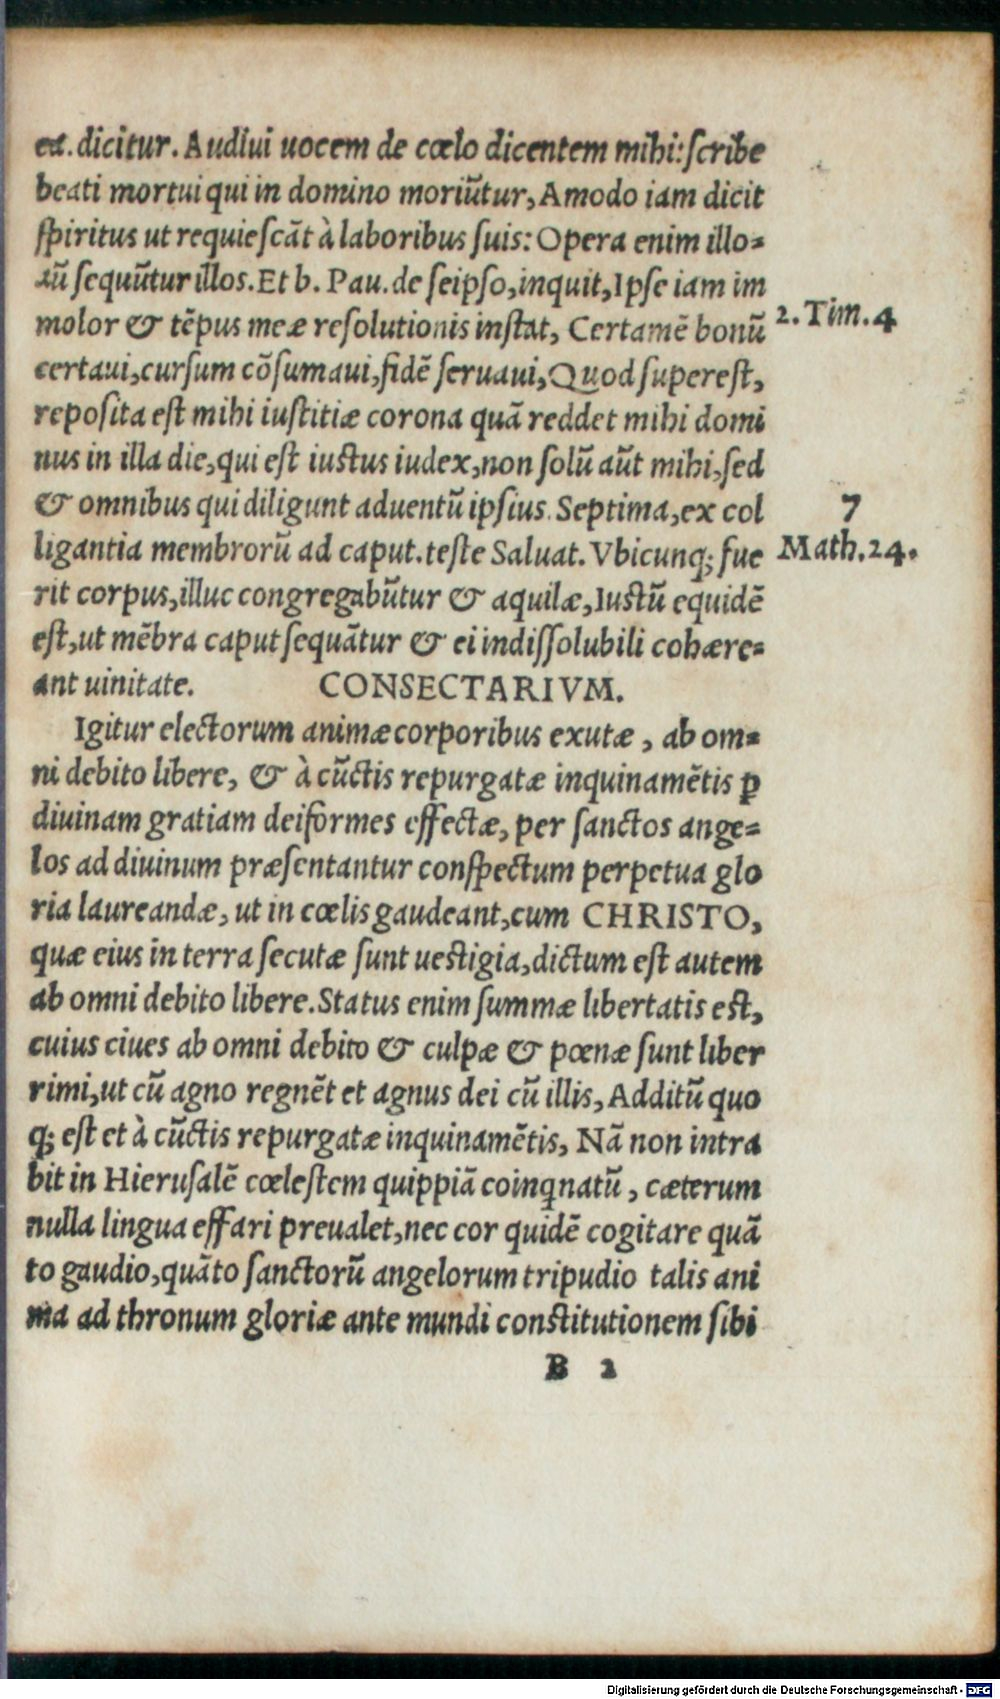 ea. dicitur. Audiui uocem de cœlo dicentem mihi: ſcribe
beati mortui qui in domino moriūtur, Amodo iam dicit
ſpiritus ut requieſcāt à laboribus ſuis: Opera enim illo-
rū ſequūtur illos. Et b. Pau. de ſeipſo, inquit, Ipſe iam im
molor & tēpus meæ reſolutionis inſtat, Certamē bonū
2. Tim. 4
certaui, curſum cōſumaui, fidē ſeruaui, Quod ſupereſt,
repoſita eſt mihi iuſtitiæ corona quā reddet mihi domi
nus in illa die, qui eſt iuſtus iudex, non ſolū aūt mihi, ſed
& omnibus qui diligunt aduentū ipſius. Septima, ex col
7
ligantia membrorū ad caput. teſte Saluat. Vbicunq; fue
Math. 24.
rit corpus, illuc congregabūtur & aquilæ, Iuſtū equidē
eſt, ut mēbra caput ſequātur & ei indiſſolubili cohære-
ant uinitate. CONSECTARIVM.
Igitur electorum animæ corporibus exutæ, ab om-
ni debito libere, & à cūctis repurgatæ inquinamētis ꝑ
diuinam gratiam deiformes effectæ, per ſanctos ange-
los ad diuinum præſentantur conſpectum perpetua glo
ria laureandæ, ut in cœlis gaudeant, cum CHRISTO,
quæ eius in terra ſecutæ ſunt ueſtigia, dictum eſt autem
ab omni debito libere. Status enim ſummæ libertatis eſt,
cuius ciues ab omni debito & culpæ & pœnæ ſunt liber
rimi, ut cū agno regnēt et agnus dei cū illis, Additū quo
q; eſt et à cūctis repurgatæ inquinamētis, Nā non intra
bit in Hieruſalē cœleſtem quippiā coinꝗnatū, cæterum
nulla lingua effari preualet, nec cor quidē cogitare quā
to gaudio, quāto ſanctorū angelorum tripudio talis ani
ma ad thronum gloriæ ante mundi conſtitutionem ſibi
B 2
Digitalisierung gefördert durch die Deutsche Forschungsgemeinschaft - DFG